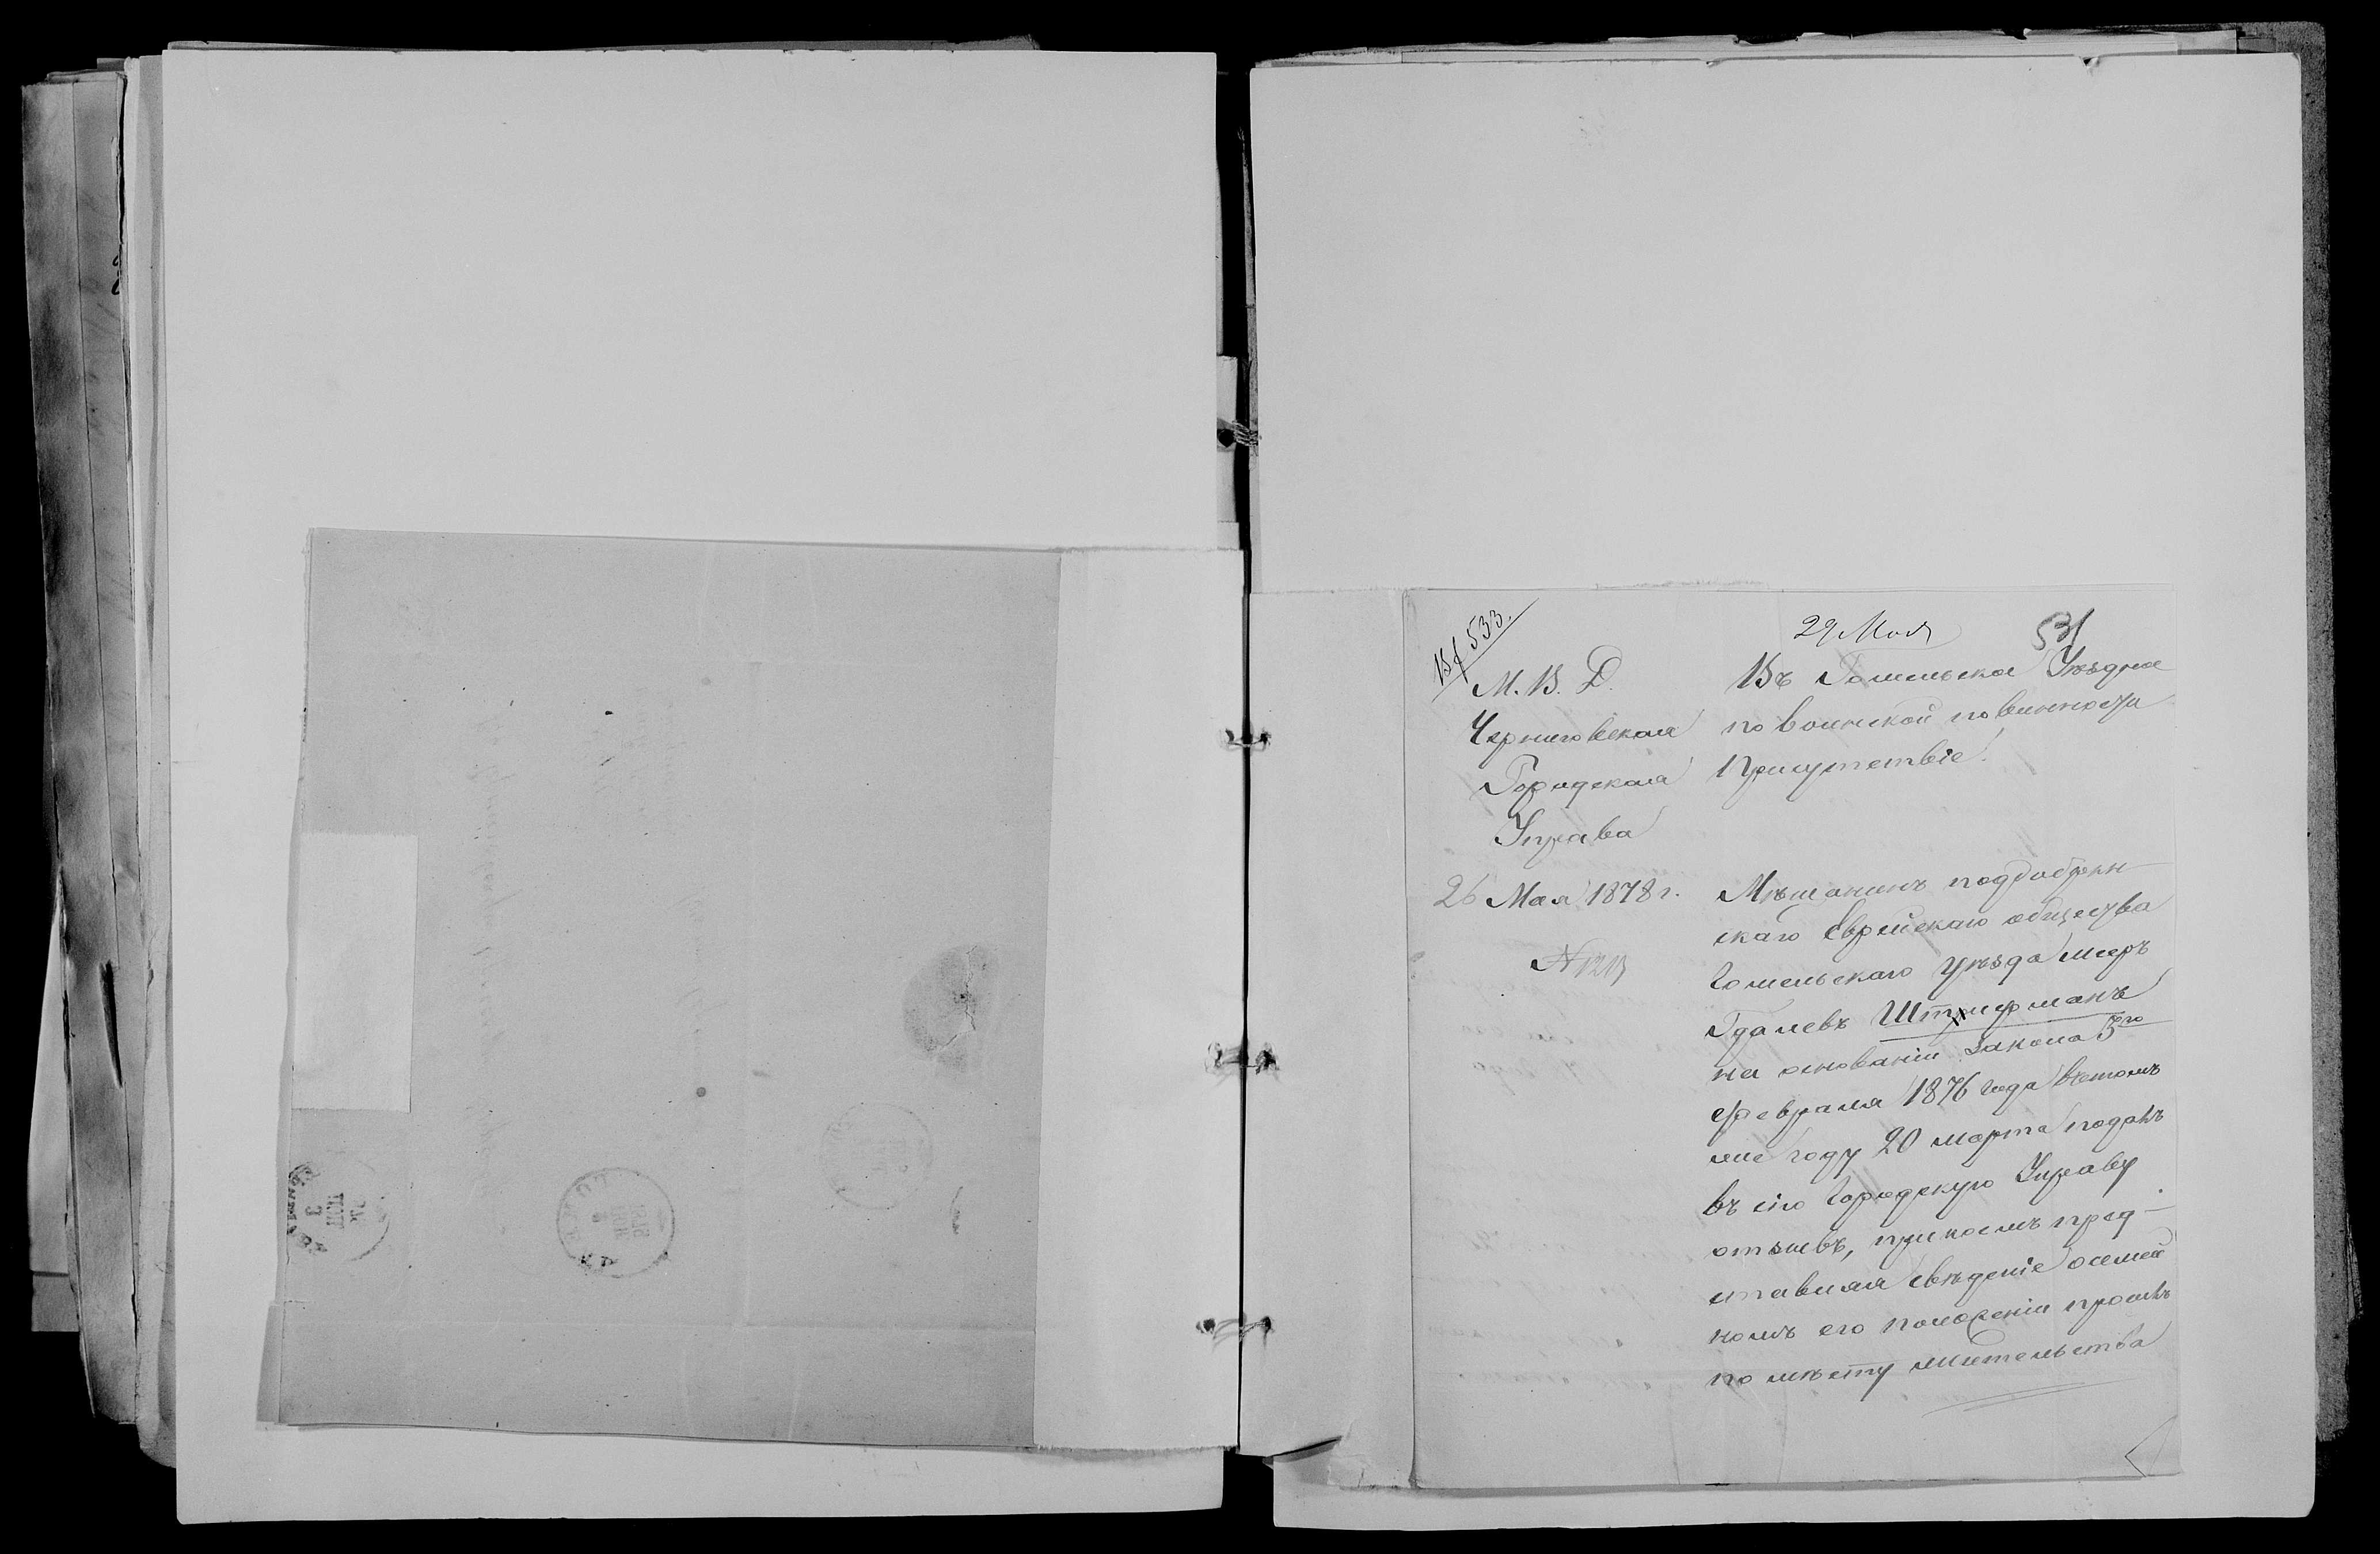 Вх 533.
29 Мая
531
М. В. Д.
Черниговская
Городская
Управа
26 Мая 1878 г.
№ 1213
Въ Гомельское Уѣздное
по воинской повинности
Присутствіе.
Мѣщанинъ поддобрян-
скаго Еврейскаго общества
Гомельскаго уѣзда Меер
Гдалевъ Штрифманъ
на основаніи закона 3го
февраля 1876 года въ томъ
же году 20 марта подалъ
въ сію Городскую Управу
отзывъ, при коемъ пред-
ставляя свѣдѣніе о семей
номъ его положеніи просилъ
по мѣсту жительства